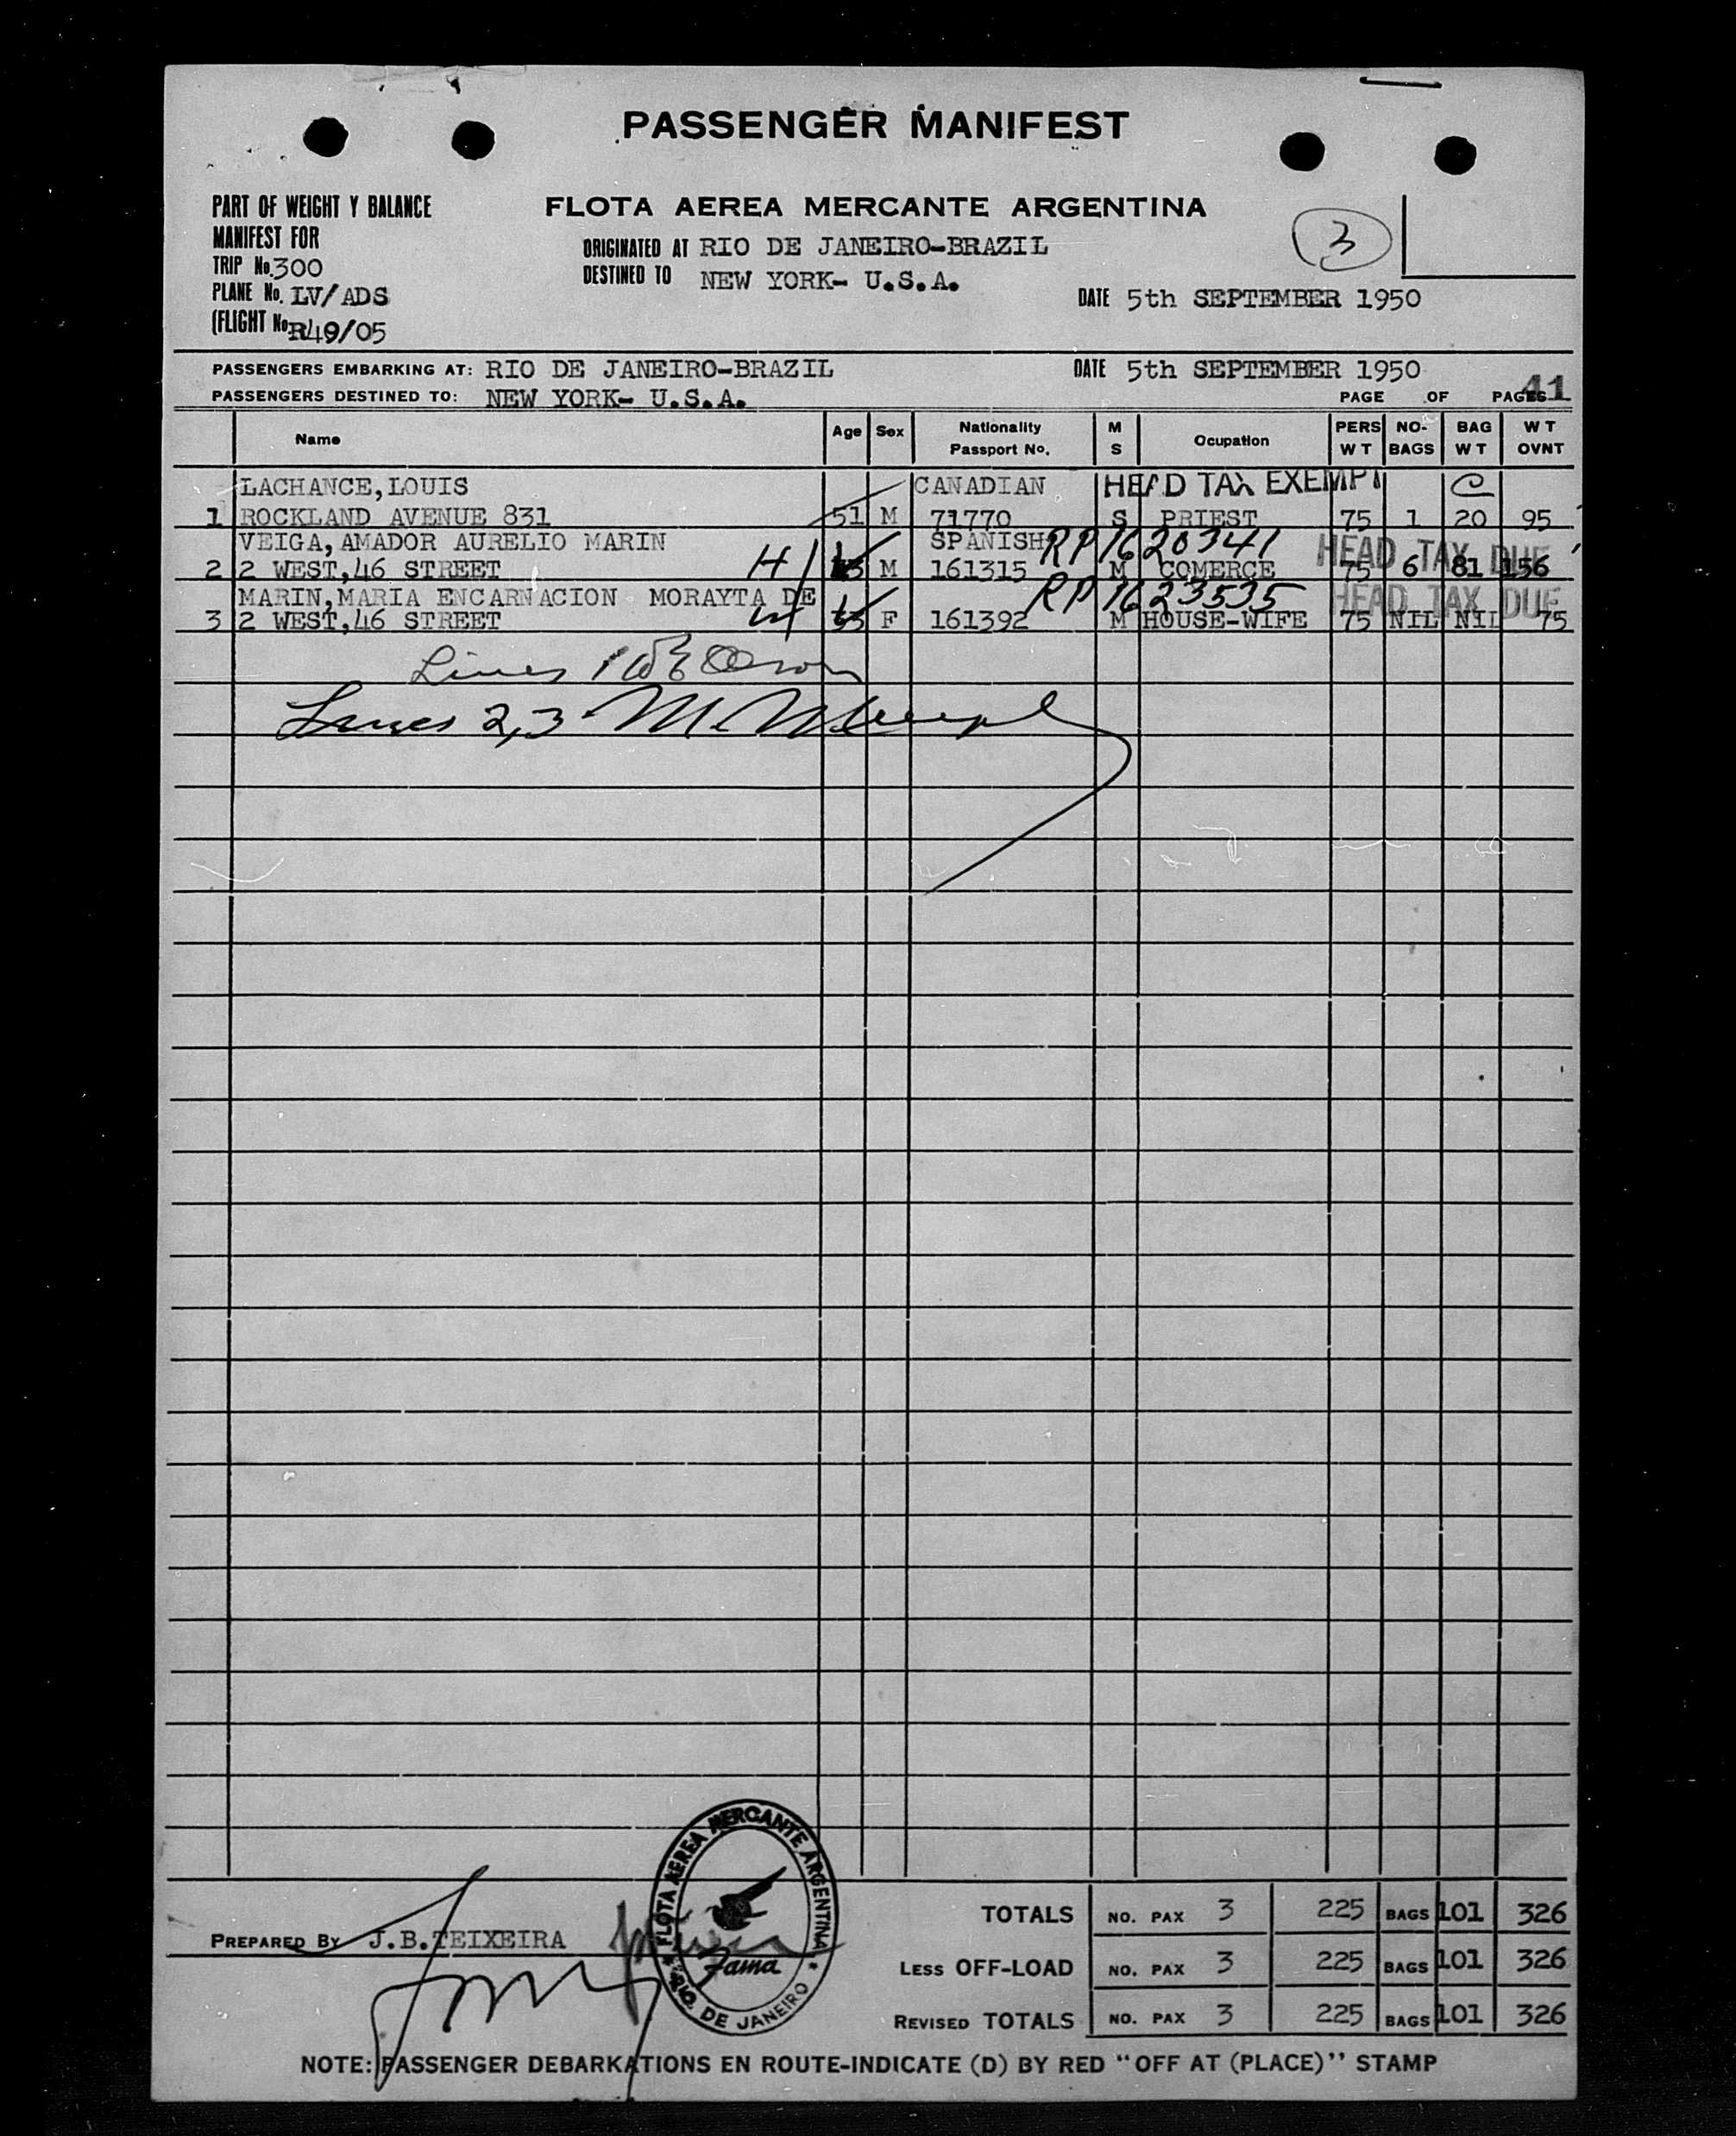 PASSENGER MANIFEST
PART OF WEIGHT Y BALANCE
MANIFEST FOR
TRIP No. 300
PLANE No. LV/ADS
(FLIGHT No R49/05
FLOTA AEREA MERCANTE ARGENTINA
ORIGINATED AT RIO DE JANEIRO-BRAZIL
DESTINED TO NEW YORK- U.S.A.
3
DATE 5th SEPTEMBER 1950
PASSENGERS EMBARKING AT: RIO DE JANEIRO-BRAZIL DATE 5th SEPTEMBER 1950
PASSENGERS DESTINED TO: NEW YORK- U.S.A. PAGE OF PAGES 41
Name Age Sex Nationality Passport No. M S Ocupation PERS WT NO- BAGS BAG WT WT OVNT
LACHANCE,LOUIS CANADIAN HEAD TAX EXEMPT C
1 ROCKLAND AVENUE 831 51 M 71770 S PRIEST 75 1 20 95
VEIGA,AMADOR AURELIO MARIN SPANISH RP 1620341 HEAD TAX DUE
2 2 WEST,46 STREET H M 161315 M COMERCE 75 6 81 156
MARIN,MARIA ENCARNACION MORAYTA DE RP 1623535 HEAD TAX DUE
3 2 WEST,46 STREET W F 161392 M HOUSE-WIFE 75 NIL NIL 75
Lines 1
Lines 2,3
FLOTA AEREA MERCANTE ARGENTINA
Fama
RIO DE JANEIRO
PREPARED BY J.B.TEIXEIRA
TOTALS NO. PAX 3 225 BAGS 101 326
LESS OFF-LOAD NO. PAX 3 225 BAGS 101 326
REVISED TOTALS NO. PAX 3 225 BAGS 101 326
NOTE: PASSENGER DEBARKATIONS EN ROUTE-INDICATE (D) BY RED "OFF AT (PLACE)" STAMP